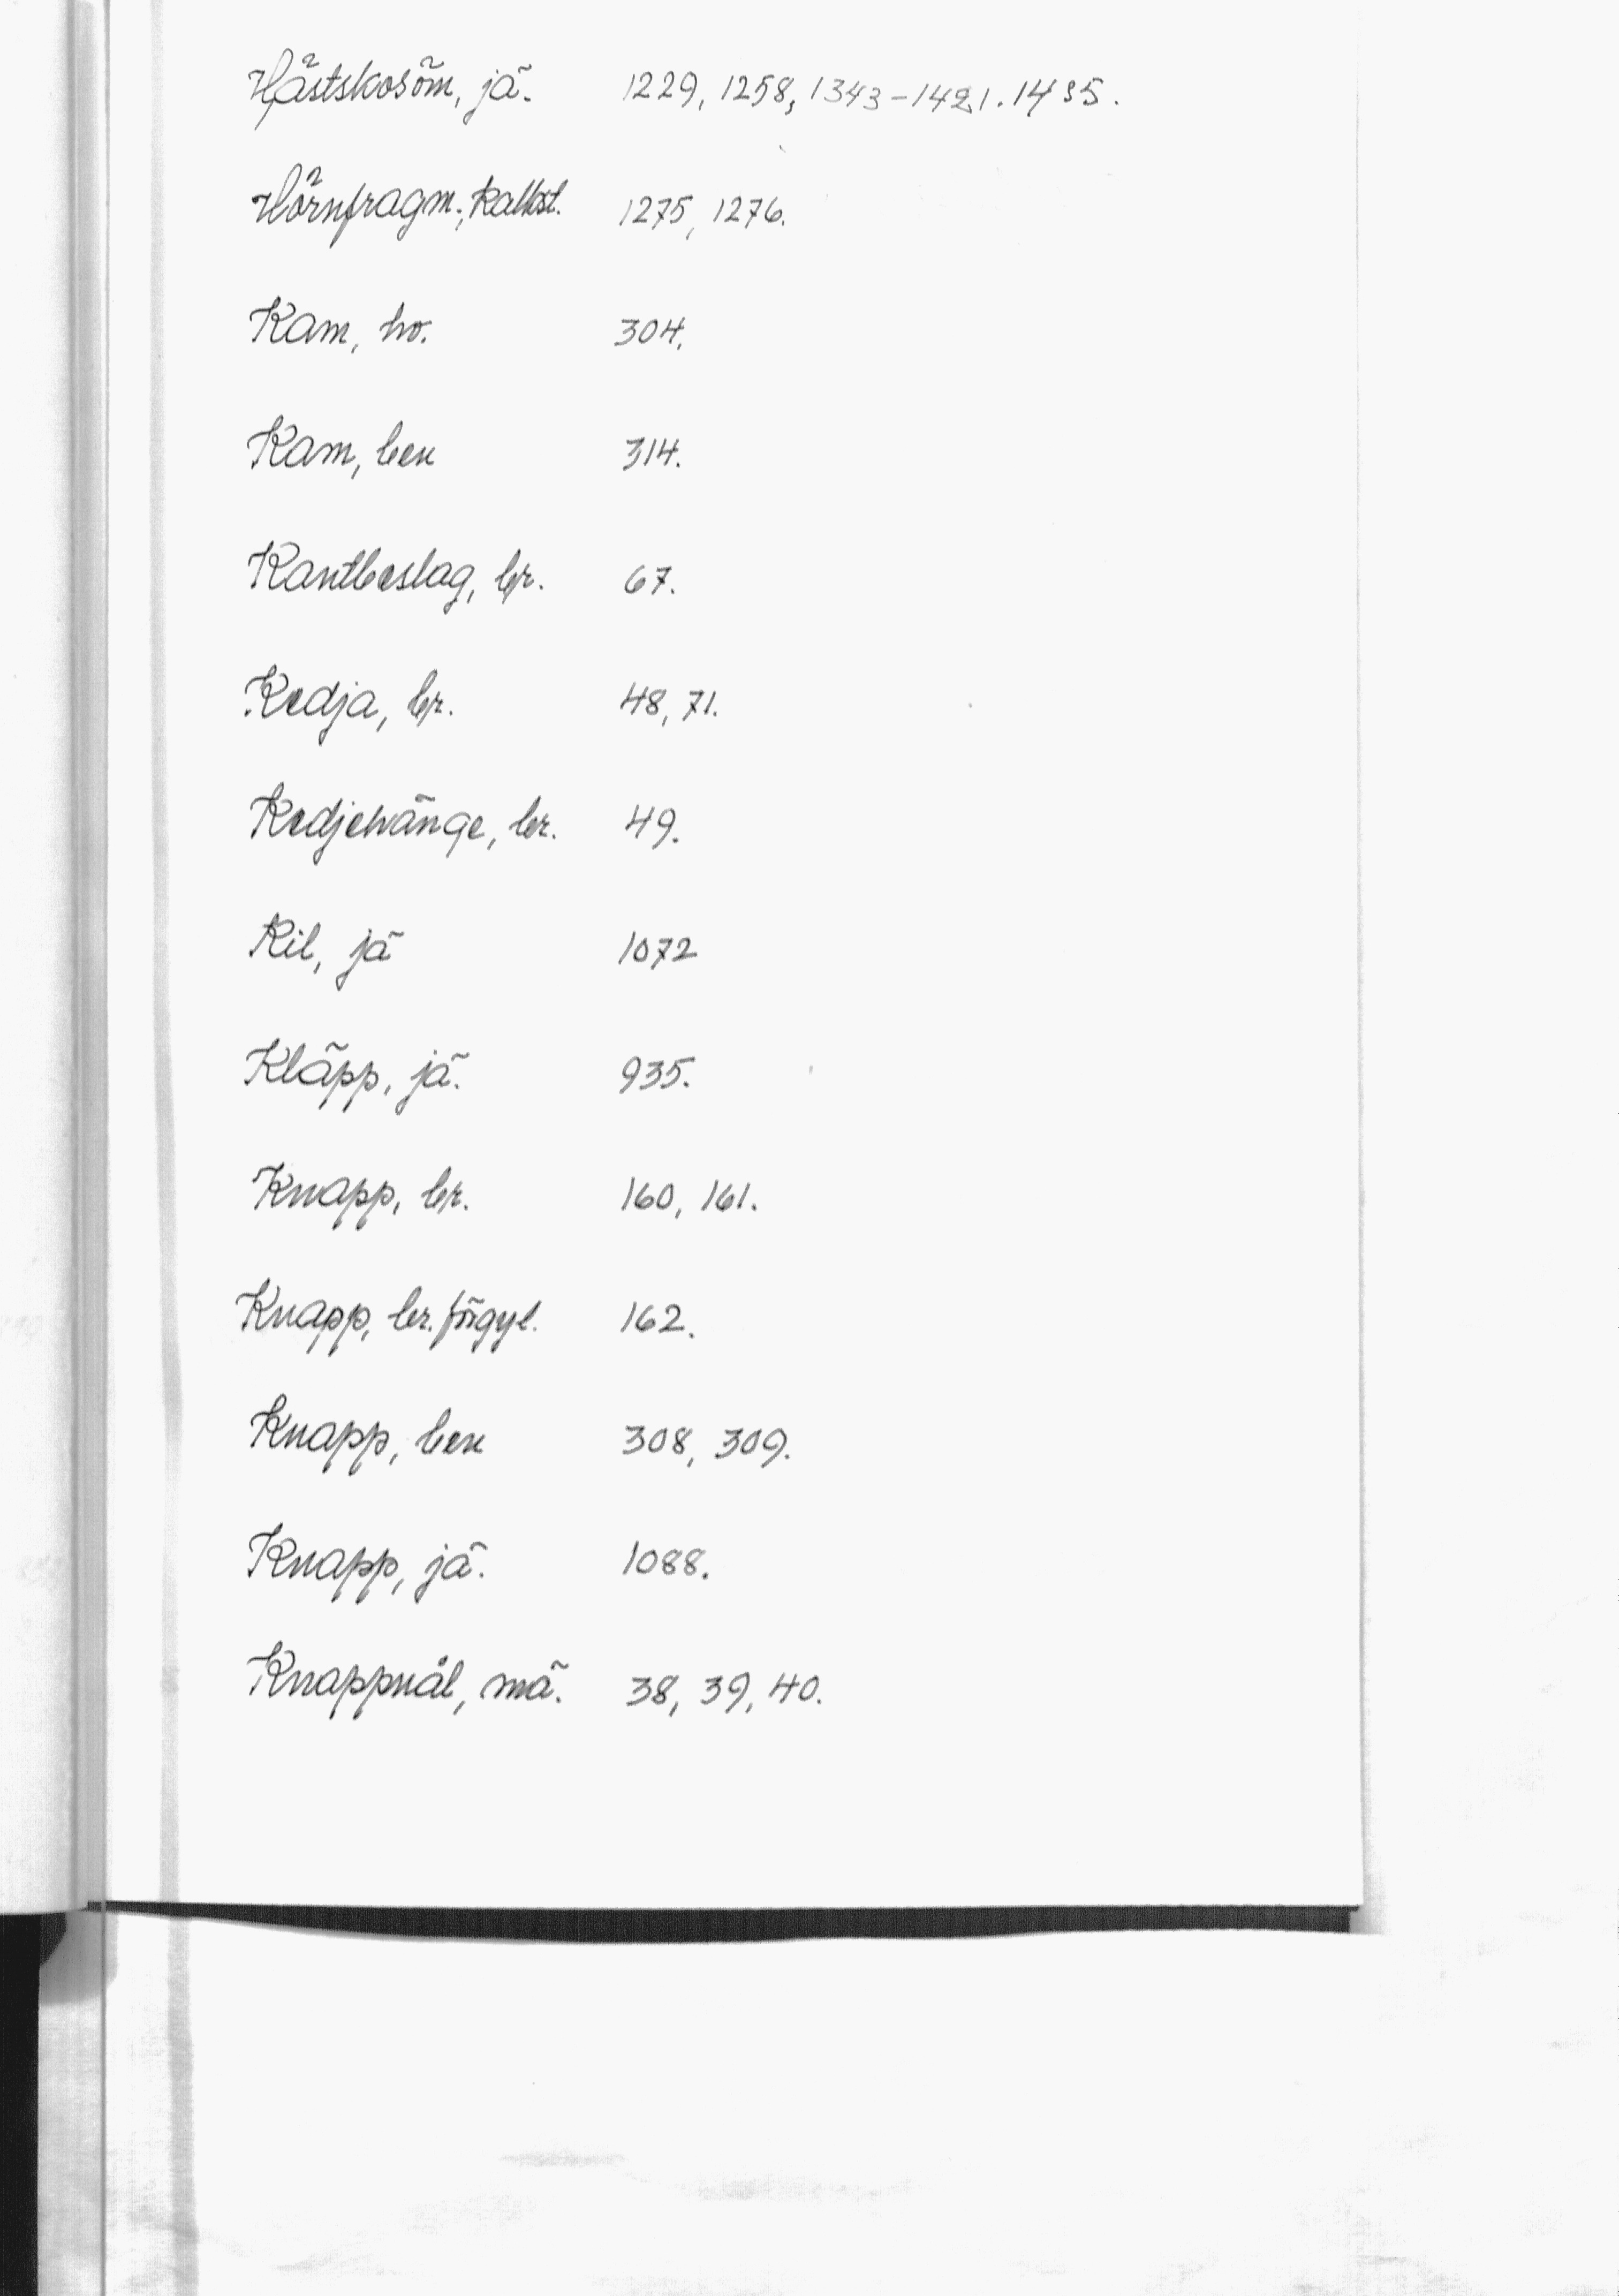 Hästskosöm, jä. 1229, 1258, 1343-1421. 1435.
Hörnfragm., kalkst. 1275, 1276.
Kam, ho. 304.
Kam, ben 314.
Kantbeslag, br. 67.
Kedja, br. 48, 71.
Kedjehänge, br. 49.
Kil, jä 1072
Kläpp, jä. 935.
Knapp, br. 160, 161.
Knapp, br. förgyl. 162.
Knapp, ben 308, 309.
Knapp, jä. 1088.
Knappnål, mä. 38, 39, 40.